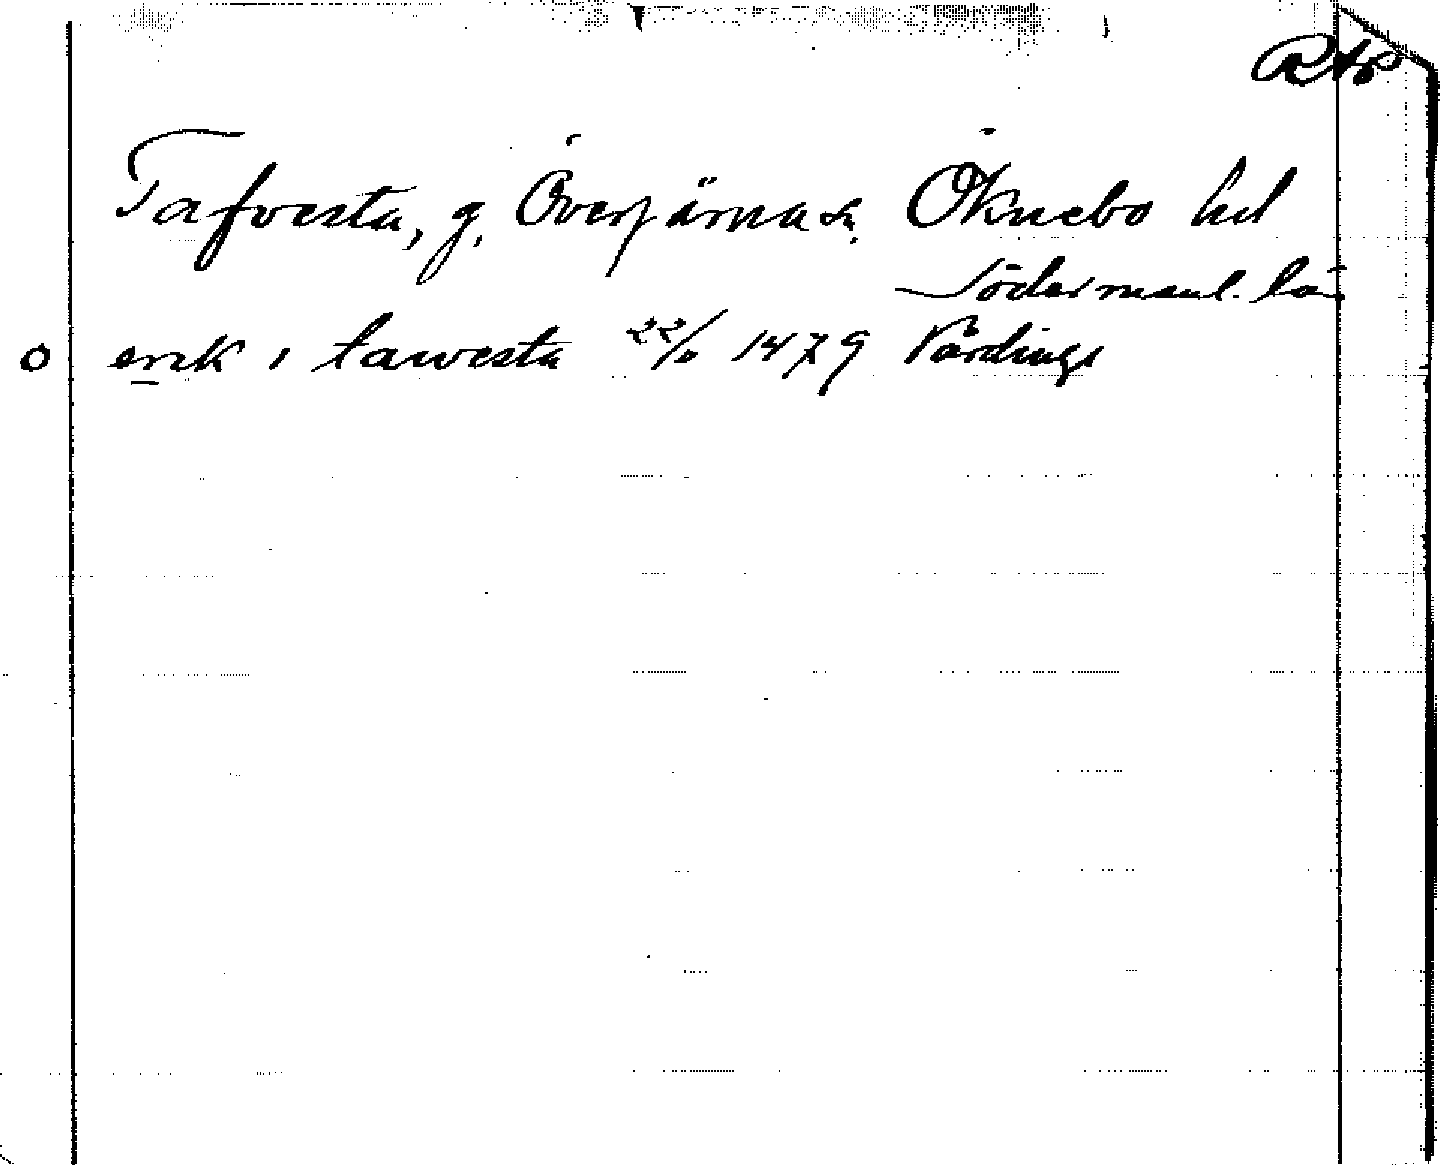 RAp
Tafvesta, g, Överjärna sn. Öknebo hd
Södermanl. län
o erik i tawesta 22/10 1479 Vårdinge